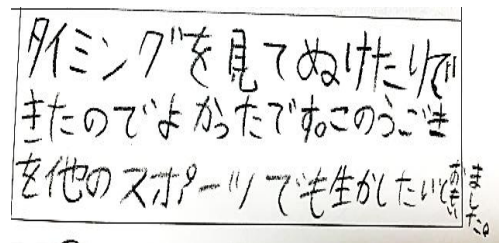 タイミングを見てぬけたりで
きたのでよかったです。このうごき
を他のスポーツでも生かしたいと
おもい
ました。